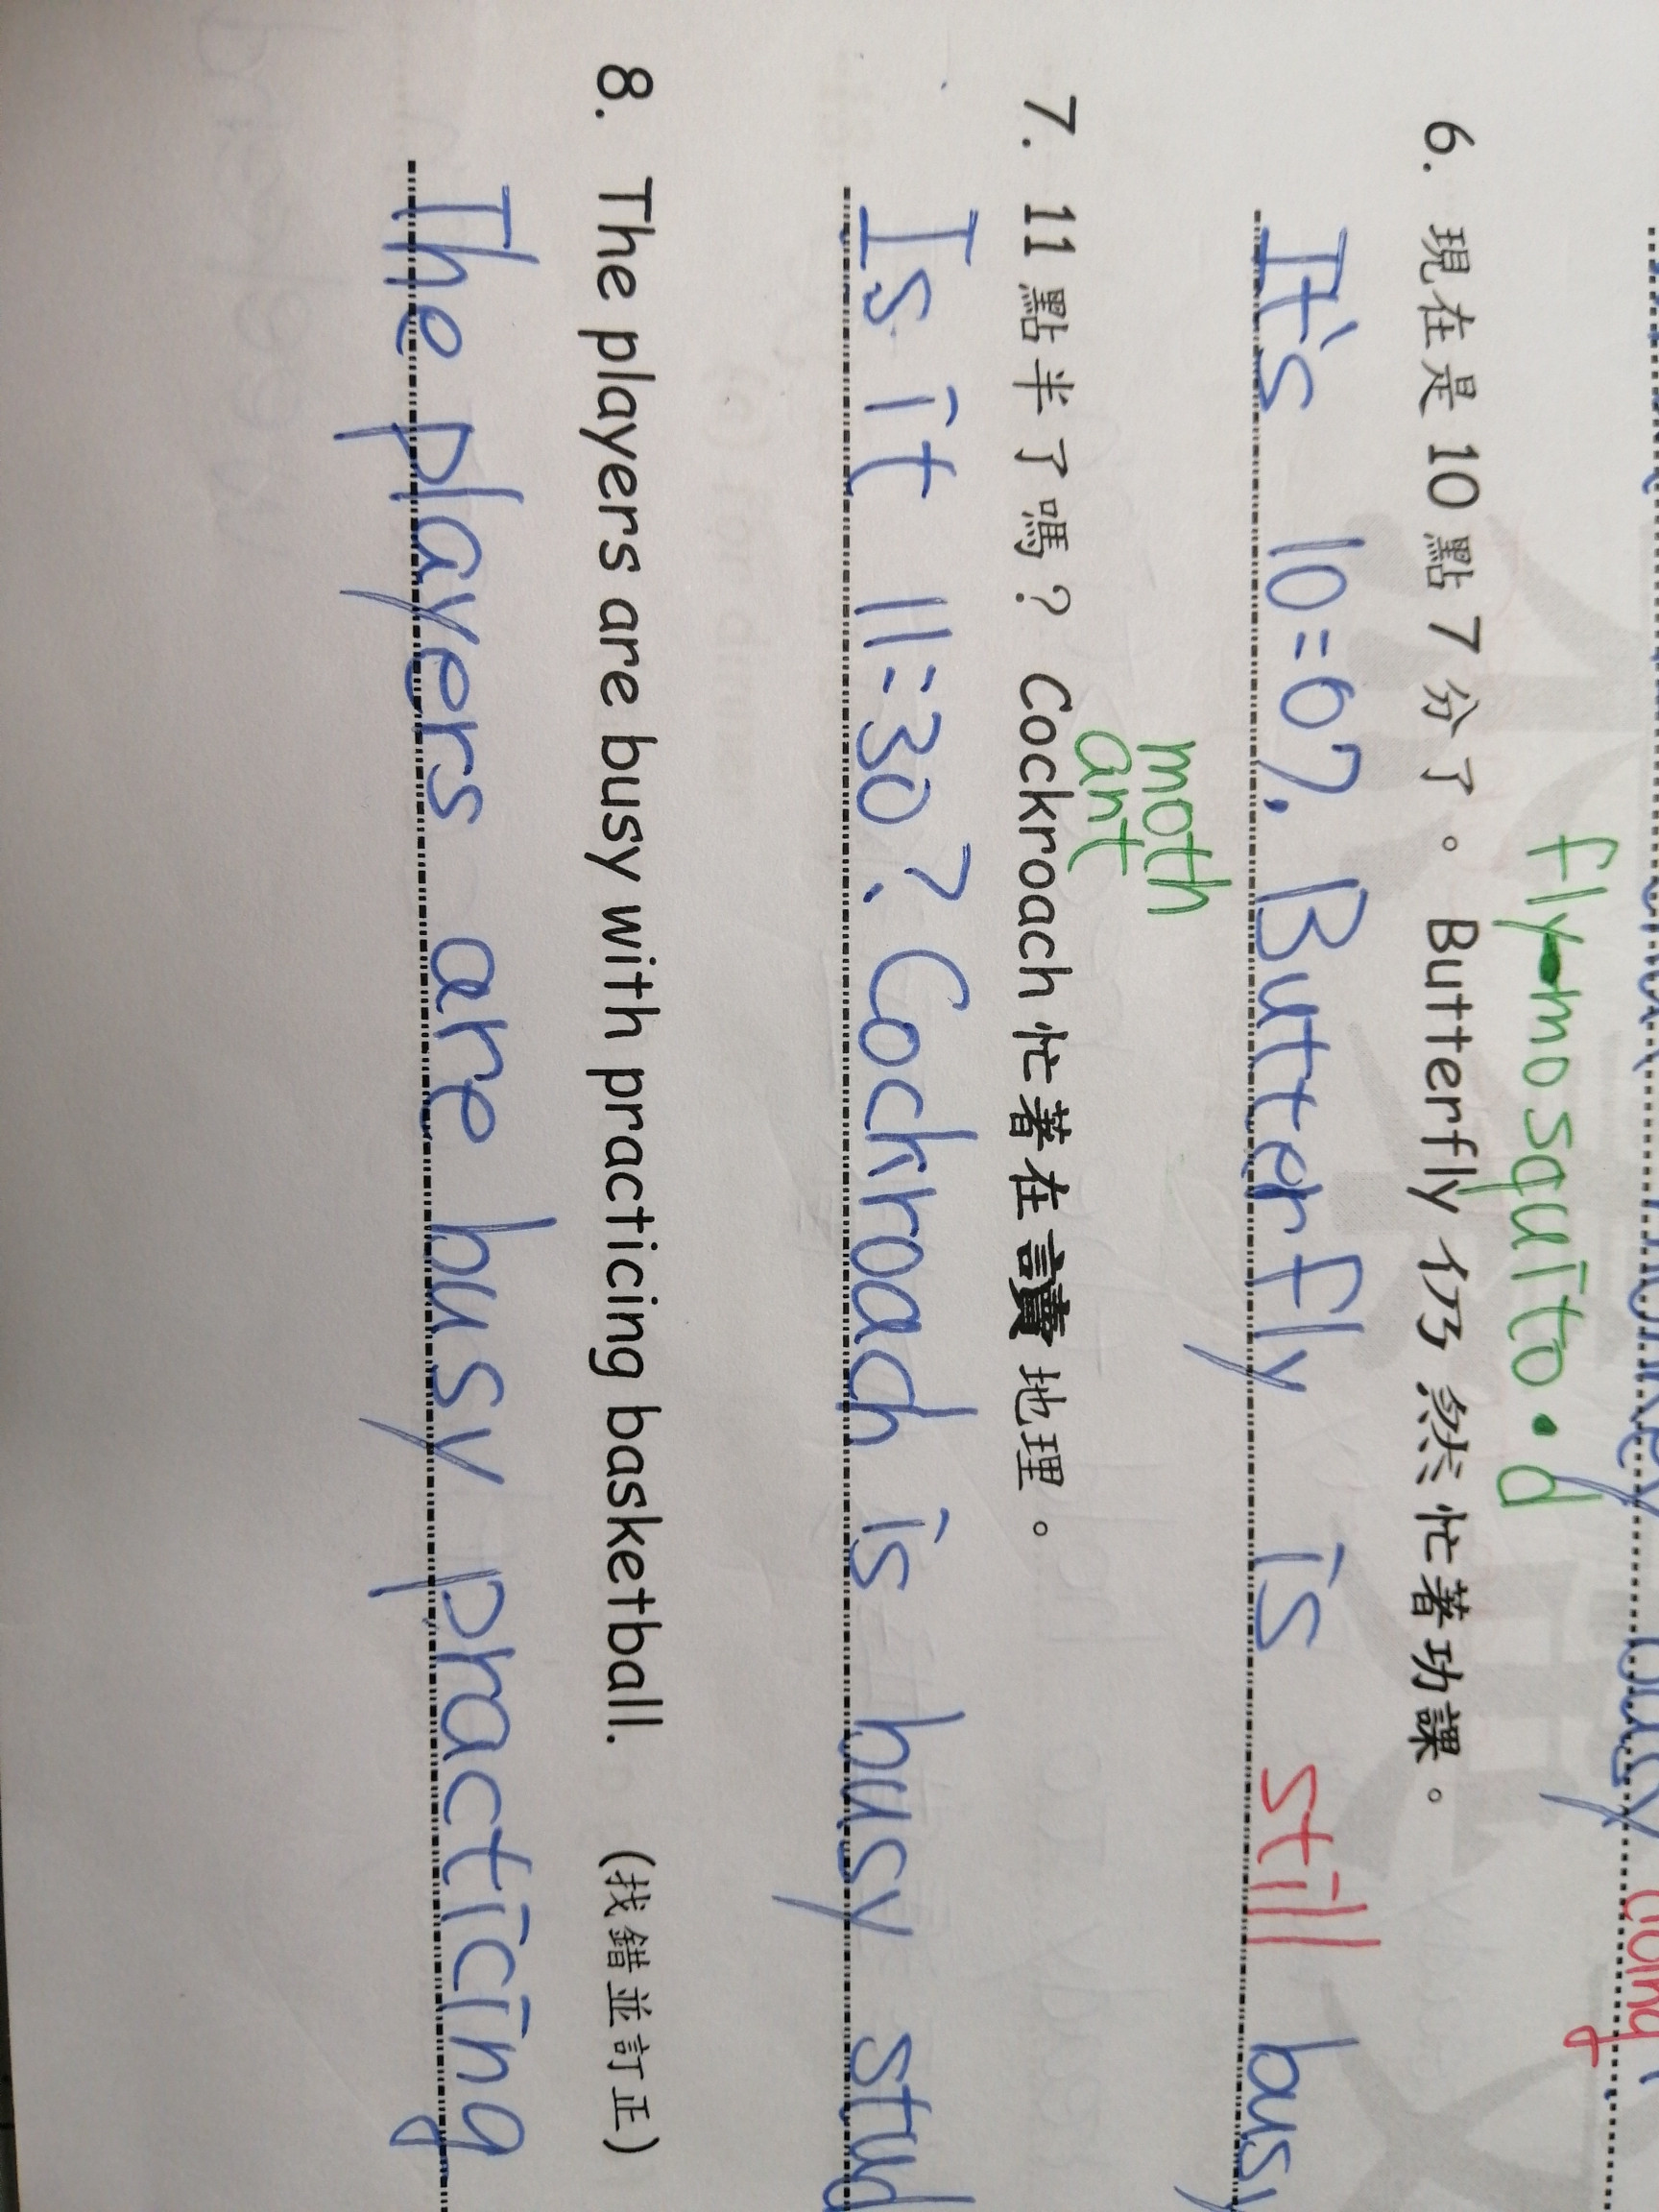 doing
fly mosquito • d
6. 現在是 10 點 7 分了。 Butterfly 仍然忙著功課。
It's 10:07. Butterfly is still busy
moth
ant
7. 11 點半了嗎? Cockroach 忙著在讀地理。
Is it 11:30? Cockroach is busy stud
8. The players are busy with practicing basketball. (找錯並訂正)
The players are busy practicing